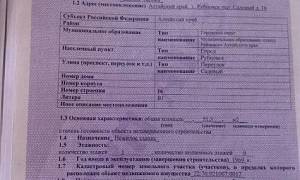 1.2 Адрес (местоположение) Алтайский край, г. Рубцовск, пер. Садовый д. 16
Субъект Российской Федерации Алтайский край
Район
Муниципальное образование Тип Городской округ
наименование Муниципальное образование город Рубцовск Алтайского края
Населенный пункт Тип Город
наименование Рубцовск
Улица (проспект, переулок и т.д.) Тип Переулок
наименование Садовый
Номер дома
Номер корпуса
Номер строения 16
Литера
Иное описание местоположения
1.3 Основная характеристика: общая площадь
степень готовности объекта незавершенного строительства
1.4 Назначение: Нежилое здание
1.5 Этажность: количество этажей
количество подземных этажей
1.6 Год ввода в эксплуатацию (завершения строительства) 1969 г.
1.7 Кадастровый номер земельного участка (участков), в пределах которого
расположен объект недвижимого имущества